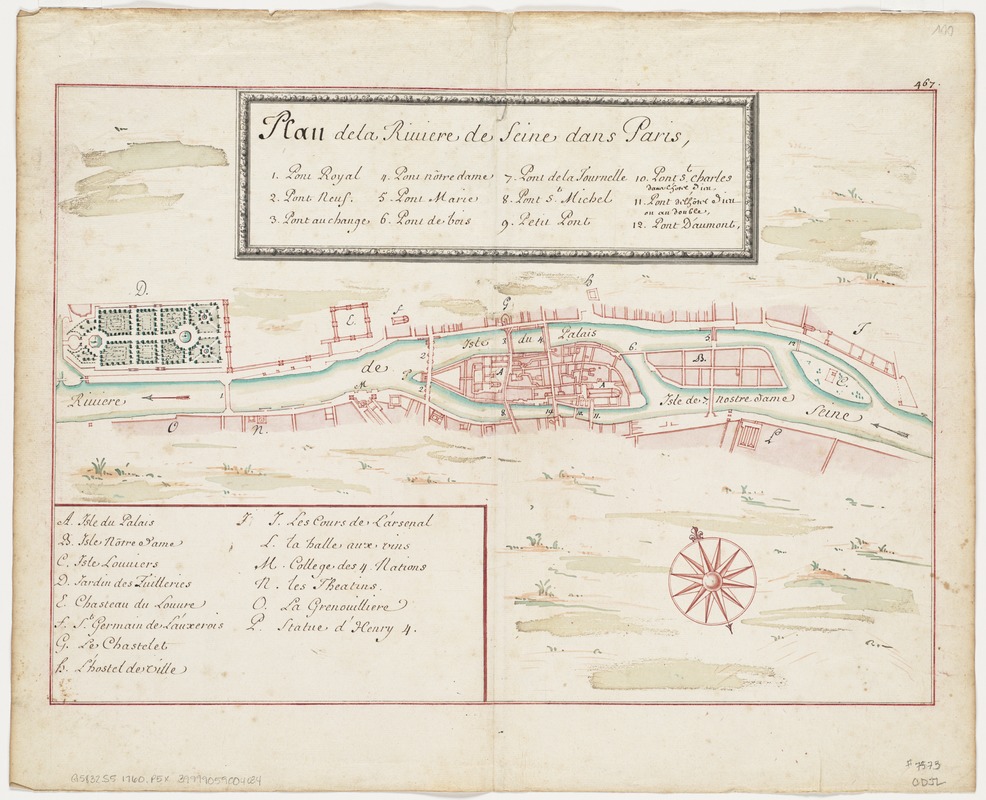 467.
Plan dela Riuiere de Seine dans Paris,
1. Pont Royal
2. Pont Neuf.
3. Pont au change
4. Pont nôtre dame
5. Pont Marie
6. Pont de bois
7. Pont de la Tournelle
8. Pont St. Michel
9. Petit Pont
10. Pont St. Charles
dans l'hôtel Dieu
11. Pont de l'hôtel Dieu
ou au double,
12. Pont D'aumont,
D.
E.
F
G
h
I
Isle du Palais
de
Riuiere
Isle de Nostre Dame
Seine
A
A
B.
C.
M
P
O
N.
L
1
2
2
3
4
5
6.
7
8
9
10
11.
12
A. Isle du Palais
B. Isle Nôtre Dame
C. Isle Louuiers
D. Jardin des Tuilleries
E. Chasteau du Louure
F. St. Germain de Lauxerois
G. Le Chastelet
h. L'hostel de ville
I. Les Cours de L'arsenal
L. la halle aux vins
M. College des 4. Nations
N. les Theatins.
O. La Grenouilliere
P. Statue d'Henry 4.
G5832.S5 1760.P5x
F 7573